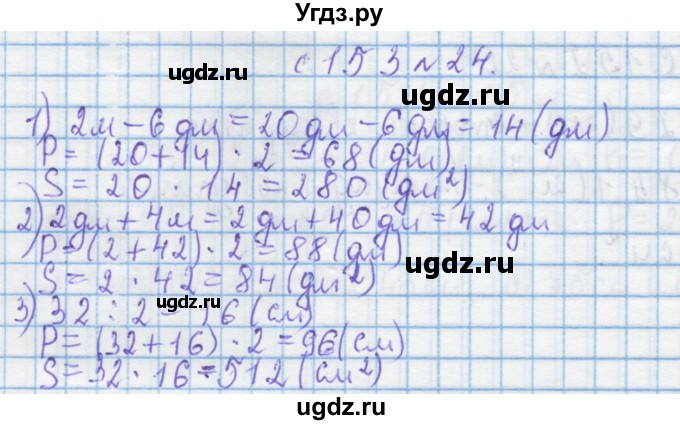 Угдз.ру
с 153 № 24.
угдз.ru
ugdz.ru
1) 2м - 6 дм = 20 дм - 6 дм = 14 (дм)
P = (20 + 14) · 2 = 68 (дм)
S = 20 · 14 = 280 (дм²)
ugdz.ru
2) 2 дм + 4 м = 2 дм + 40 дм = 42 дм
P = (2 + 42) · 2 = 88 (дм)
ugdz.ru
S = 2 · 42 = 84 (дм²)
3) 32 : 2 = 16 (см)
ugdz.ru
P = (32 + 16) · 2 = 96 (см)
S = 32 · 16 = 512 (см²)
ugdz.ru